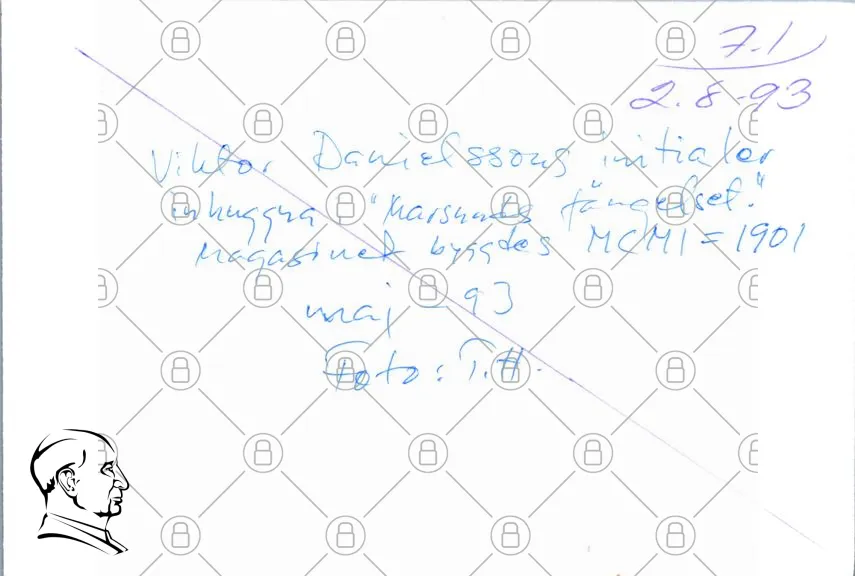 7.1
2.8-93
Viktor Danielssons initialer
inhuggna i "Marsunds fängelset."
Magasinet byggdes MCMI = 1901
maj - 93
Foto: T.H.